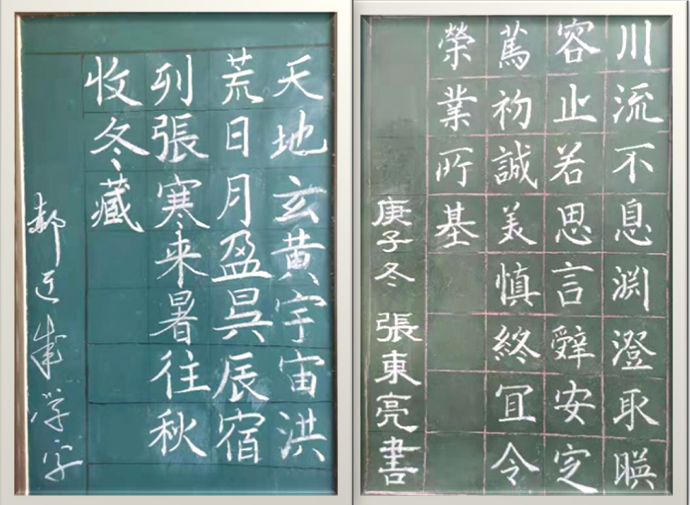 天地玄黄宇宙洪
荒日月盈昃辰宿
列張寒来暑往秋
收冬藏
学字
川流不息渊澄取暎
容止若思言辭安定
篤初誠美慎終宜令
榮業所基
庚子冬 張東亮書